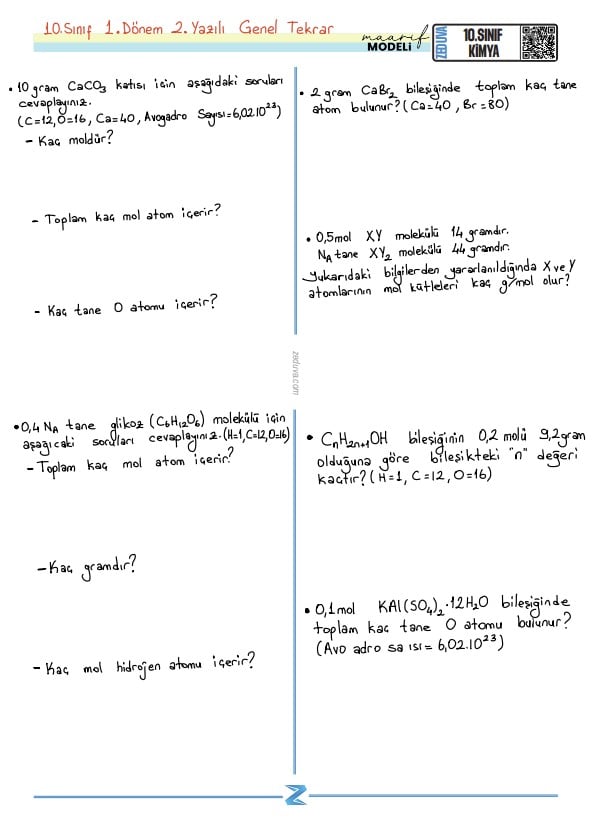 10.Sınıf 1.Dönem 2.Yazılı Genel Tekrar
maarif
MODELİ
ZEDUVA
10.SINIF
KİMYA
• 10 gram CaCO₃ katısı için aşağıdaki soruları
cevaplayınız.
(C=12, O=16, Ca=40, Avogadro Sayısı=6,02.10²³)
- Kaç moldür?
- Toplam kaç mol atom içerir?
- Kaç tane O atomu içerir?
• 0,4 Nᴀ tane glikoz (C₆H₁₂O₆) molekülü için
aşağıcaki soruları cevaplayınız.(H=1, C=12, O=16)
- Toplam kaç mol atom içerir?
- Kaç gramdır?
- Kaç mol hidrojen atomu içerir?
• 2 gram CaBr₂ bileşiğinde toplam kaç tane
atom bulunur? (Ca=40, Br=80)
• 0,5mol XY molekülü 14 gramdır.
Nᴀ tane XY₂ molekülü 44 gramdır.
Yukarıdaki bilgilerden yararlanıldığında X ve Y
atomlarının mol kütleleri kaç g/mol olur?
• CₙH₂ₙ₊₁OH bileşiğinin 0,2 molü 9,2 gram
olduğuna göre bileşikteki "n" değeri
kaçtır? (H=1, C=12, O=16)
• 0,1mol KAl(SO₄)₂.12H₂O bileşiğinde
toplam kaç tane O atomu bulunur?
(Avo adro sa ısı = 6,02.10²³)
zeduva.com
Z